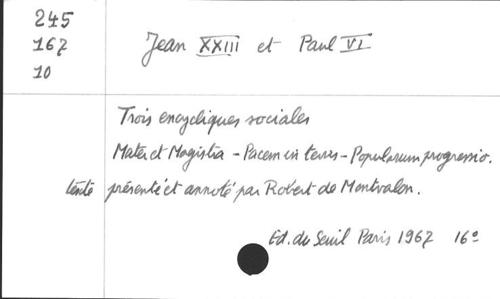 245
167
10
Jean XXIII et Paul VI
Trois encycliques sociales
Mater et Magistra - Pacem in terris - Popularum progressio.
texte présenté et annoté par Robert de Montvalon.
Ed. du Seuil Paris 1967 16°